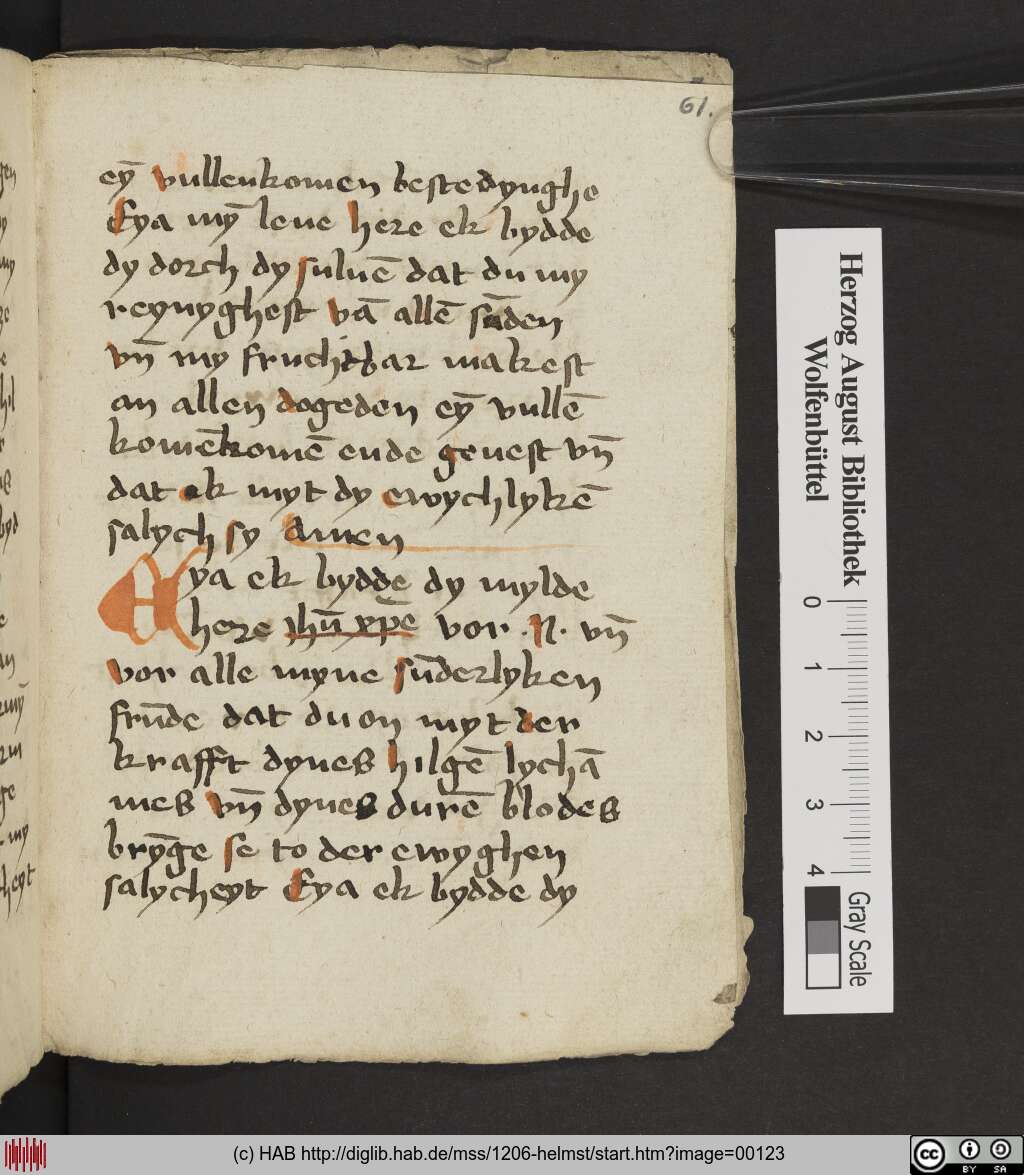 61.
eȳ vullenkomen bestedynghe
Eya mȳ leue here ek bydde
dy dorch dy suluē dat du my
reynyghest vā allē sūden
vn̄ my fruchtbar makest
an allen dogeden eȳ vullē
komēkomē ende geuest vn̄
dat ek myt dy ewychlykē
salych sy amen
Eya ek bydde dy mylde
here ihū xp̄e vor .N. vn̄
vor alle myne sūderlyken
frūde dat du on myt der
krafft dynes hilgē lychā
mes vn̄ dynes durē blodes
brȳge se to der ewyghen
salycheyt Eya ek bydde dy
Herzog August Bibliothek
Wolfenbüttel
0 1 2 3 4
Gray Scale
(c) HAB http://diglib.hab.de/mss/1206-helmst/start.htm?image=00123
cc BY SA